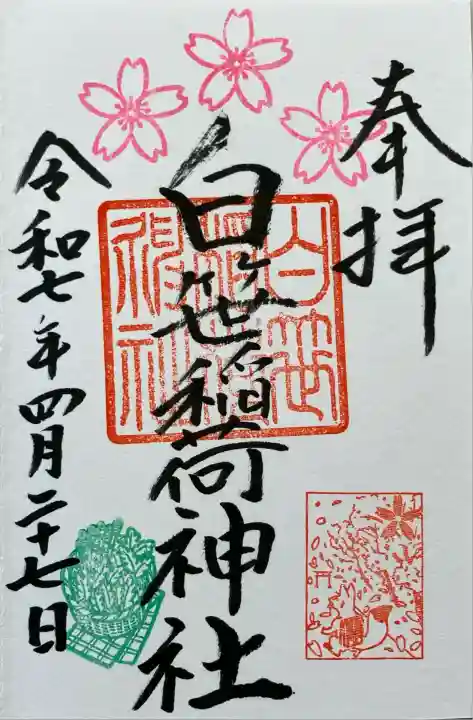 奉拝
白笹稲荷神社
白笹
稲荷
神社
令和七年四月二十七日